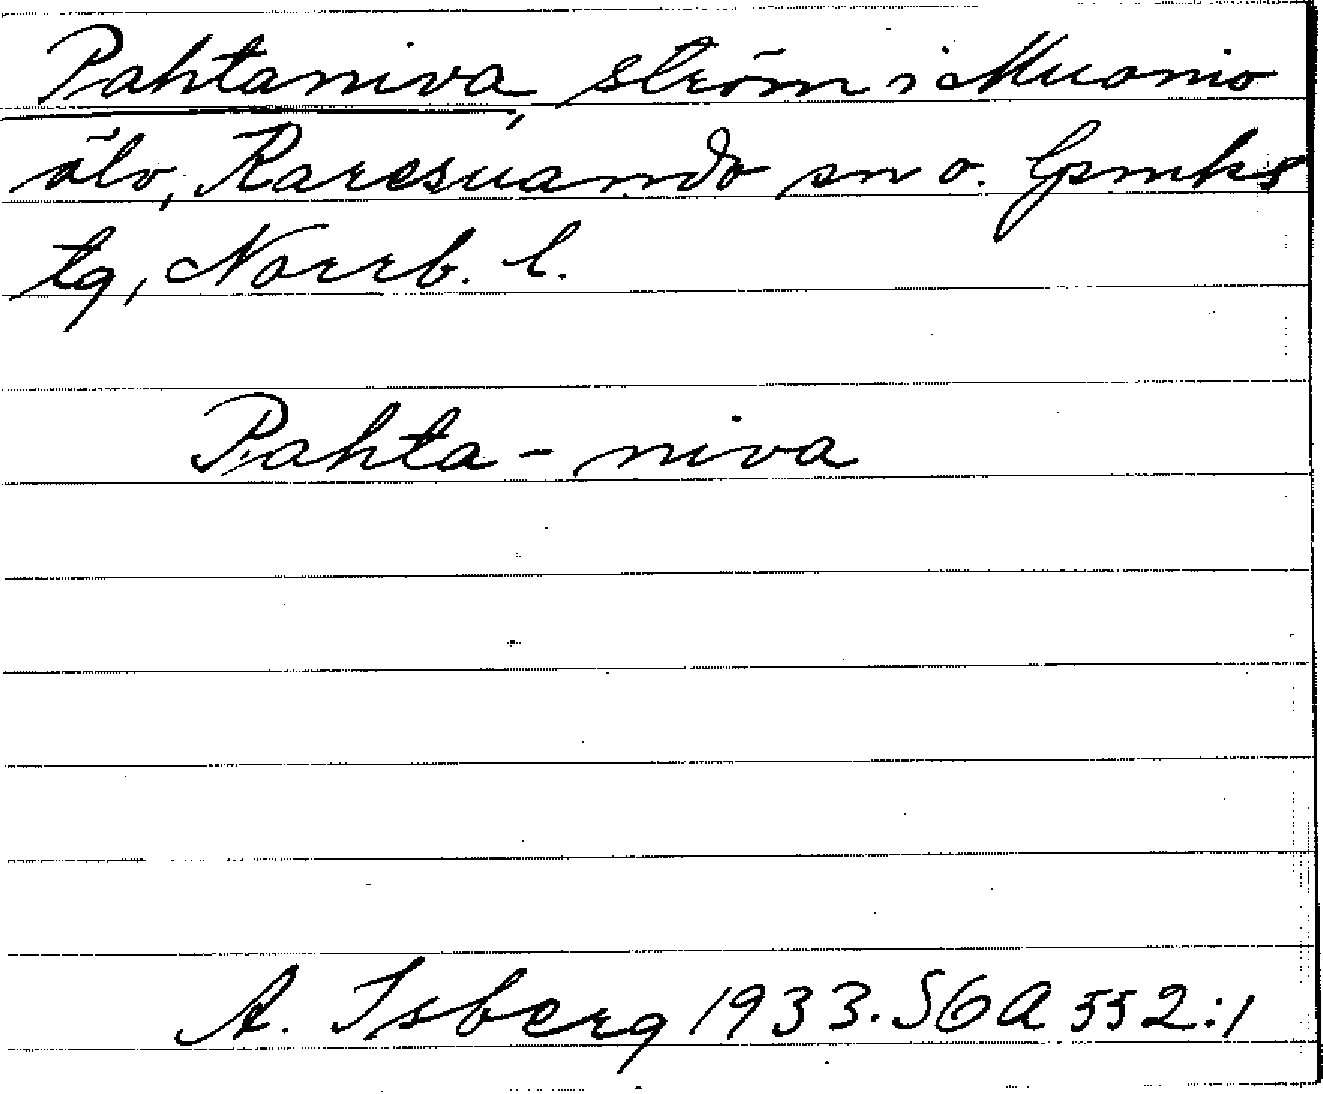 Pahtaniva, ström i Muonio
älv, Karesuando sn o. lpmks
tg, Norrb. l.
Pahta - niva
A. Isberg 1933. SGA 552:1